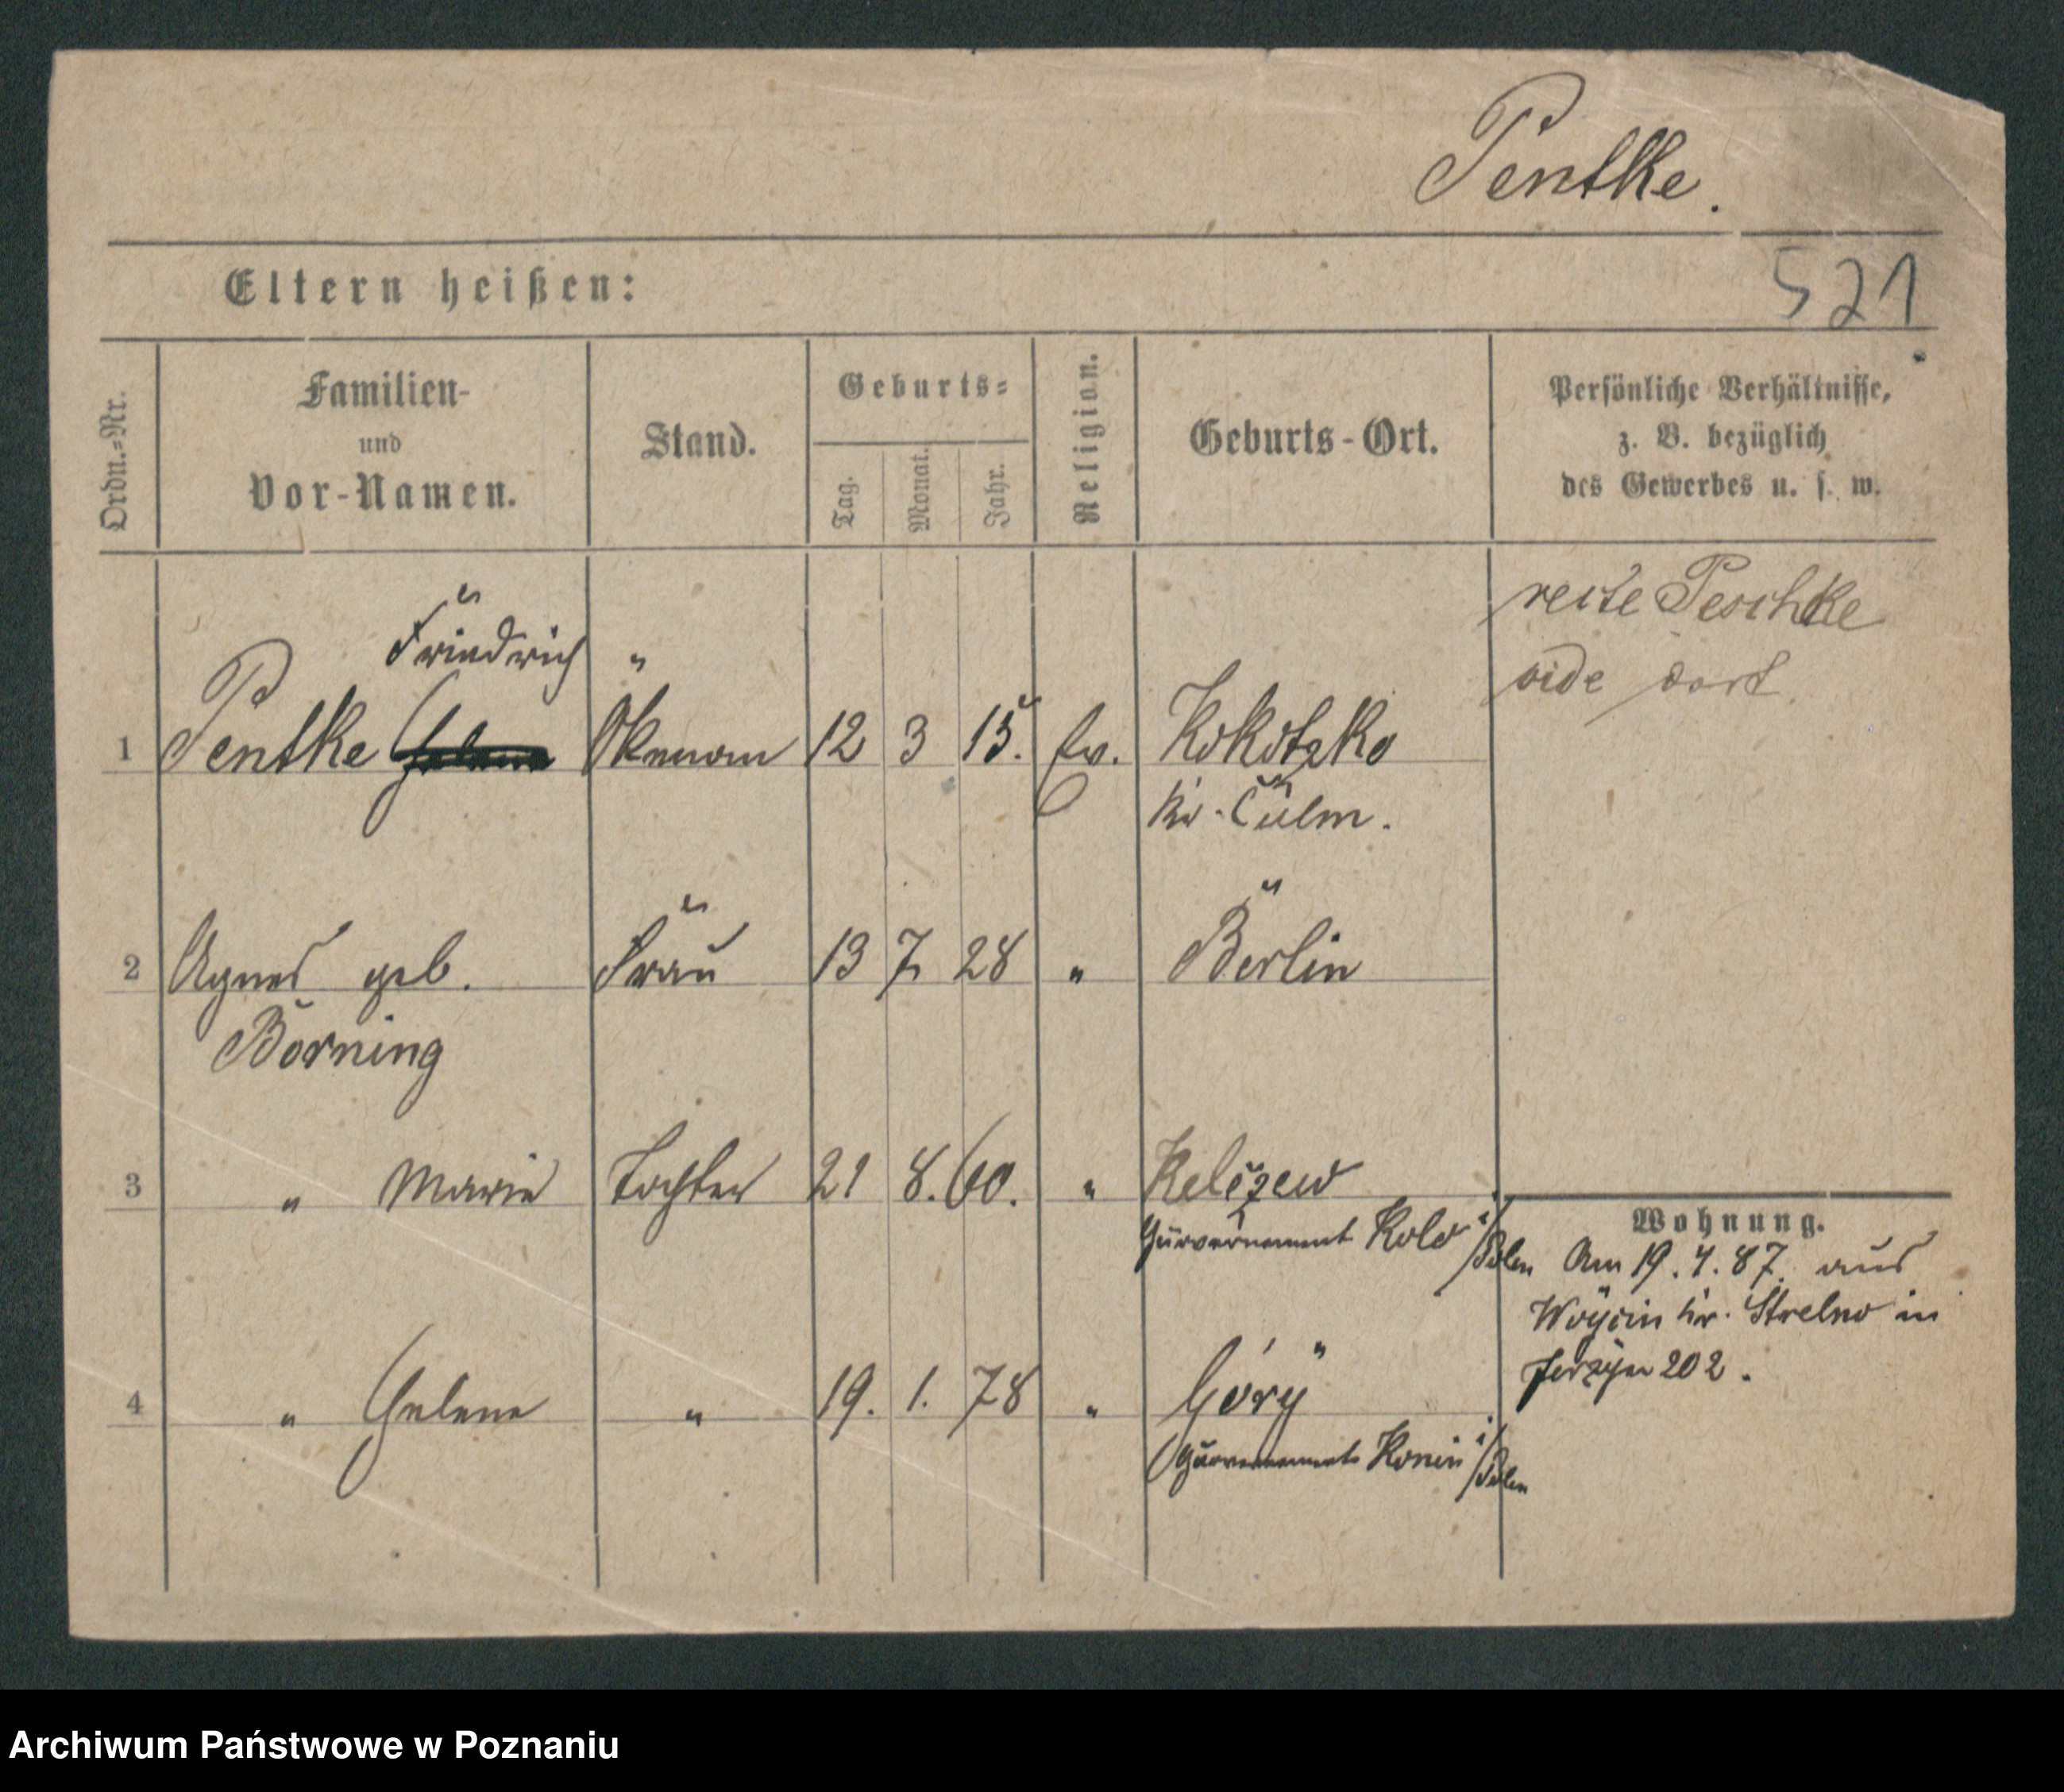 Pentke.
521
Eltern heißen:
Ordn.=Nr.
Familien- und Vor-Namen.
Stand.
Geburts=
Tag.
Monat.
Jahr.
Religion.
Geburts-Ort.
Persönliche Verhältnisse,
z. B. bezüglich
des Gewerbes u. s. w.
recte Peschke
vide dort
Friedrich "
1 Pentke Okonom 12 3 15. Ev. Kokotzko
Kr. Culm.
2 Agnes geb. Frau 13 7 28 " Berlin
Börning
3 " Marie Tochter 21 8. 60. "
Gouvernement Kolo i/Polen
4 " Helene " 19. 1. 78 " Góry
Gouvernement Konin i/Polen
Wohnung.
Am 19. 4. 87. aus
Woycin Kr. Strelno in
Jerzyce 202.
Archiwum Państwowe w Poznaniu